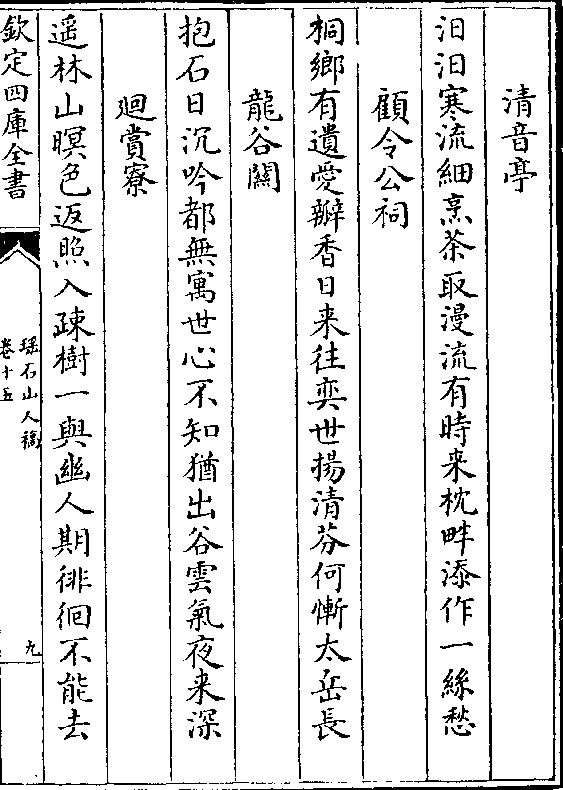 清音亭
汨汨寒流細烹茶取漫流有時来枕畔添作一絲愁
顧令公祠
桐鄉有遺愛瓣香日来往奕世揚清芬何慚太岳長
龍谷關
抱石日沉吟都無寓世心不知猶出谷雲氣夜来深
廻賞寮
遥林山暝色返照入疎樹一與幽人期徘徊不能去
欽定四庫全書
瑶石山人稿
卷十五
九